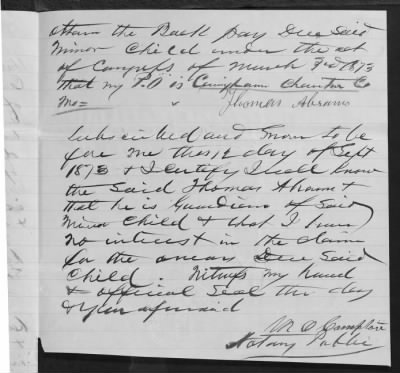 obtain the Back Pay Due Said
Minor Child under the act
of Congress of March 3rd 1873
that my P.O is Cuningham Chariton Co
Mo =
Thomas Abrams
Subscribed and Sworn to be
fore me this 12 day of Sept
1873 & I certify I well know
the Said Thomas Abrams &
that he is Guardian of Said
Minor Child & that I have
no interest in the claim
for the arrears Due Said
Child. Witness my hand
& official Seal the day
& year aforesaid
Notary Public